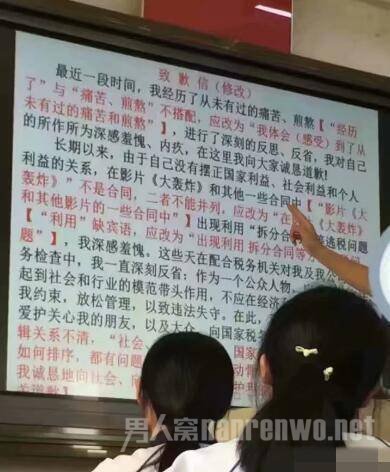 致歉信（修改）
最近一段时间，我经历了从未有过的痛苦、煎熬【“经历
了”与“痛苦、煎熬”不搭配，应改为“我体会（感受）到了从
未有过的痛苦和煎熬”】，进行了深刻的反思、反省，我对自己
的所作所为深感羞愧、内疚，在这里我向大家诚恳道歉!
长期以来，由于自己没有摆正国家利益、社会利益和个人
利益的关系，在影片《大轰炸》和其他一些合同中【“影片《大
轰炸》”不是合同，二者不能并列，应改为“在影片《大轰炸》
和其他影片的一些合同中”】出现利用“拆分合同”等逃税问题
【“利用”缺宾语，应改为“出现利用 拆分合同等方
题”】，我深感羞愧。这些天在配合税务机关对我及我公
务检查中，我一直深刻反省：作为一个公众人物，应
起到社会和行业的模范带头作用，不应在经济
我约束，放松管理，以致违法失守。在此，
爱护关心我的朋友，以及大众、向国家税务
辑关系不清，“社会、
如何排序，都有问题
我诚恳地向社会、向
关道歉】
男人窝nanrenwo.net